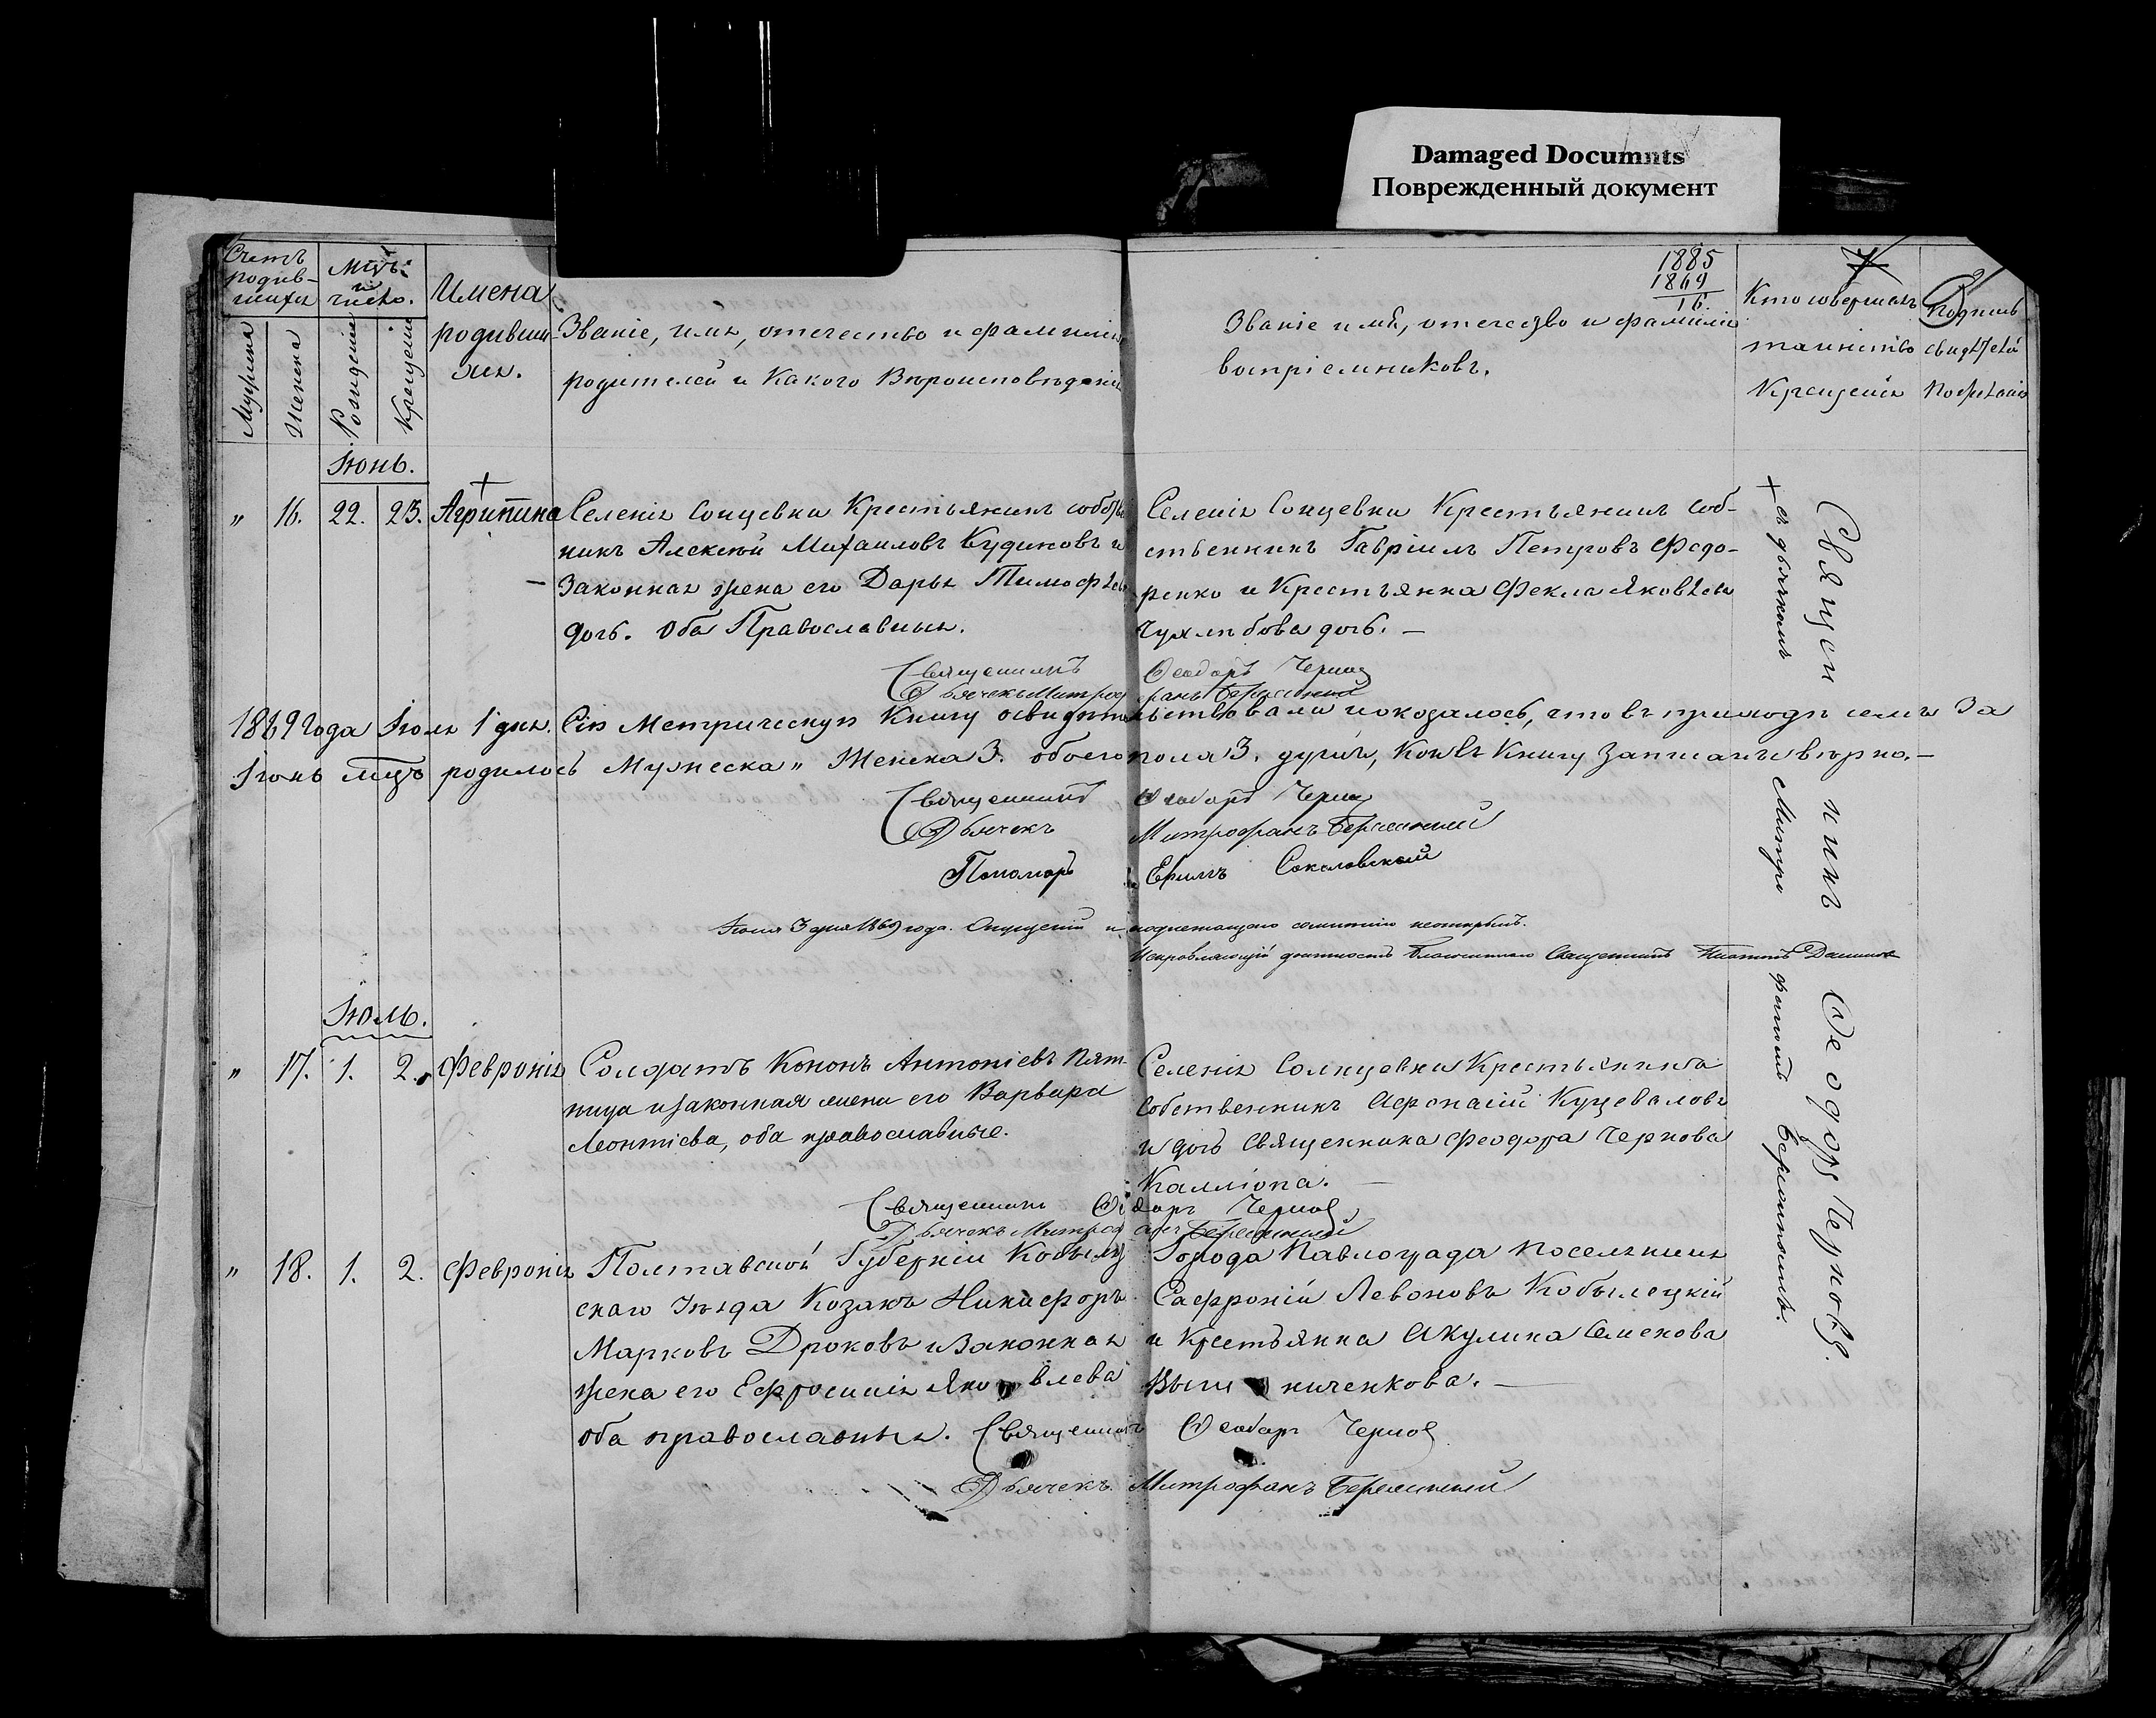 Damaged Documnts
Поврежденный документ
Счетъ родив-шихся
Мцъ и число.
Имена родивших-ся.
Званіе, имя, отечество и фамилія
родителей и Какого Вѣроисповѣданія
1885
1869
16.
Званіе имя, отечество и фамилія
воспріемниковъ.
Кто совершалъ
таинство
Крещенія
Подпись
свидѣтелей
по желанію
Мужска
Женска
Рожденія
Крещенія
Іюнь.
" 16. 22. 23. Агрипина
Селенія Сонцевки Крестьянинъ собстве
никъ Алексѣй Михаиловъ Кудиновъ и
Законная жена его Дарья Тимофѣева
дочь. Оба Православныя.
Селенія Сонцевки Крестьянинъ соб-
ственникъ Гавріилъ Петровъ Федо-
ренко и Крестьянка Фекла Яковлева
Чухлѣбова дочь. —
Священникъ Ѳеодоръ Чернов
Дьячекъ Митрофанъ
1869 года Іюля 1 дня. Сію Метрическую Книгу освидѣтельствовали и оказалось, что въ приходѣ семъ За
Іюнь мцъ родилось Мужеска " Женска 3. обоего пола 3. душъ, Кои въ Книгу Записаны вѣрно. —
Священникъ Ѳеодоръ Чернов
Дьячекъ Митрофанъ
Пономарь Ефимъ Соколовский
Іюля 3 дня 1869 года.
Исправляющій должность Благочиннаго Священникъ
Іюль.
" 17. 1. 2. Февронія
Солдатъ Кононъ Антоніевъ Пят-
ница и законная жена его Варвара
Леонтіева, оба православные.
Селенія Солнцевки Крестьянинъ
Собственникъ Афонасій Куцеваловъ
и дочь Священника Феодора Чернова
Калліопа. —
Священникъ Ѳеодоръ Чернов
Дьячекъ Митрофанъ
" 18. 1. 2. Февронія
Полтавской Губерніи Кобыляц
скаго Уѣзда Козакъ Никифоръ
Марковъ Дроковъ и Законная
жена его Ефросинія Яковлева
оба православныя.
Города Павлограда Поселянинъ
Сафроній Левоновъ Кобылецкій
и Крестьянка Акулина Семенова
Священникъ Ѳеодоръ Чернов
Дьячекъ Митрофанъ
Священникъ Ѳеодоръ Черновъ.
съ дьячкомъ Митрофаномъ